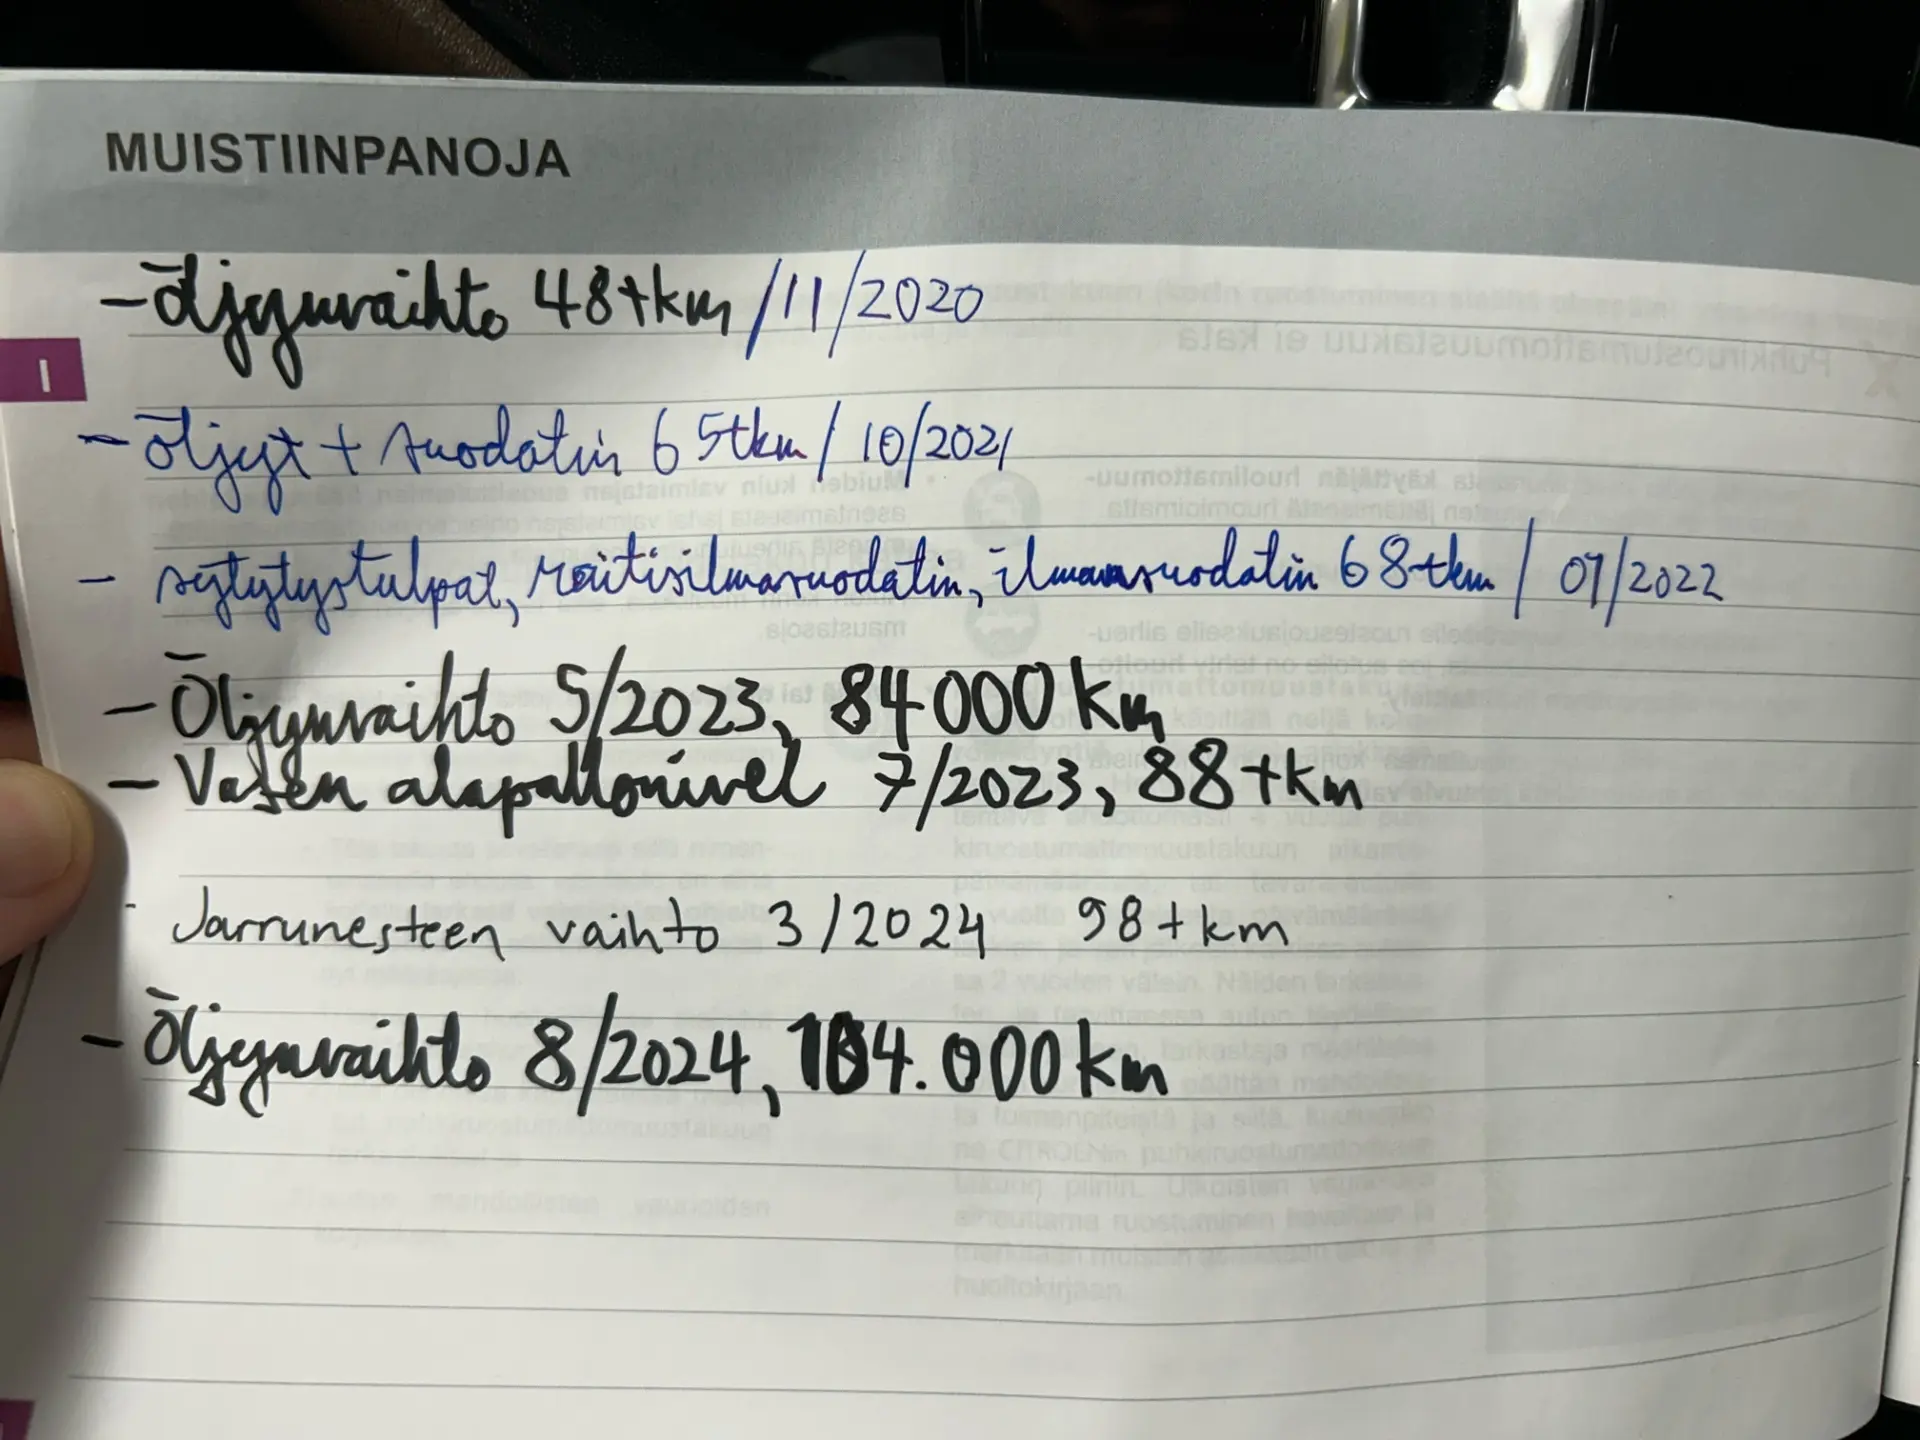 MUISTIINPANOJA
- öljynvaihto 48tkm /11/2020
I
- öljyt + suodatin 65tkm / 10/2021
- sytytystulpat, raitisilmasuodatin, ilmansuodatin 68tkm / 07/2022
- Öljynvaihto 5/2023, 84 000 km
- Vasen alapallonivel 7/2023, 88tkm
- Jarrunesteen vaihto 3/2024 98tkm
- Öljynvaihto 8/2024, 104.000 km